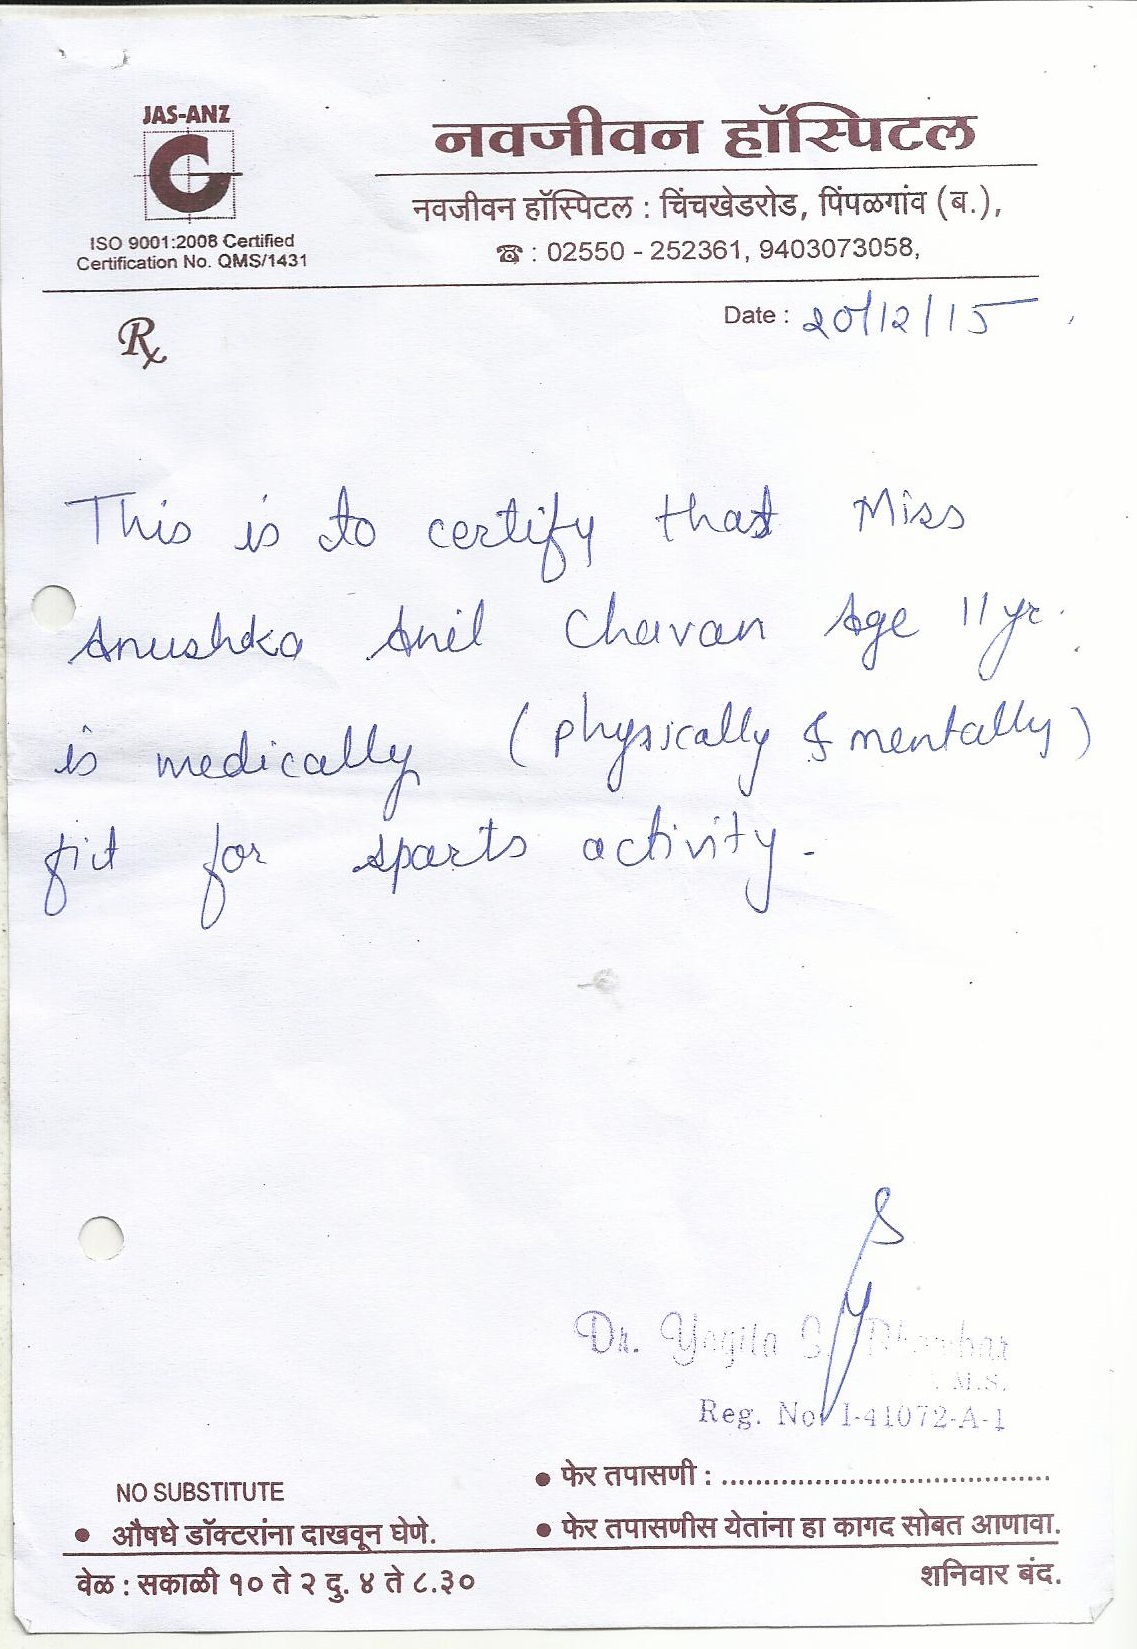 JAS-ANZ
ISO 9001:2008 Certified
Certification No. QMS/1431
नवजीवन हॉस्पिटल
नवजीवन हॉस्पिटल : चिंचखेडरोड, पिंपळगांव (ब.),
☎ : 02550 - 252361, 9403073058,
Date : 20/12/15
Rx
This is to certify that Miss
Anushka Anil Chavan Age 11 yr.
is medically (physically & mentally)
fit for sports activity.
Dr. Yogita S.
M.S.
Reg. No. I-41072-A-1
NO SUBSTITUTE
• औषधे डॉक्टरांना दाखवून घेणे.
• फेर तपासणी : ..........................................
• फेर तपासणीस येतांना हा कागद सोबत आणावा.
वेळ : सकाळी १० ते २ दु. ४ ते ८.३०
शनिवार बंद.